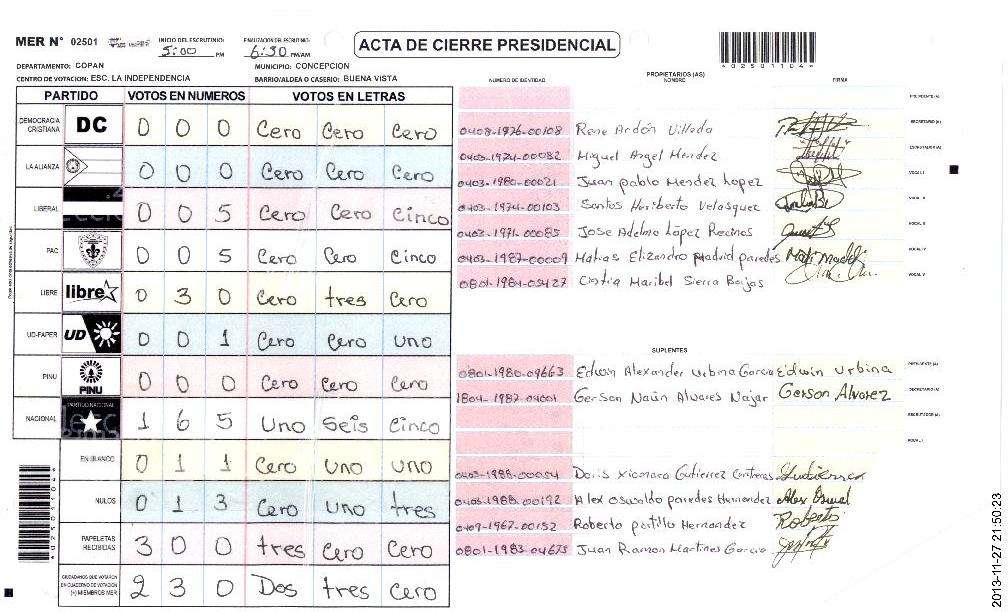 MER N° 02501 INICIO DEL ESCRUTINIO: 5:00 PM FINALIZACION DEL ESCRUTINIO: 6:30 PM/AM
ACTA DE CIERRE PRESIDENCIAL
4025011044
DEPARTAMENTO: COPAN MUNICIPIO: CONCEPCION
CENTRO DE VOTACION: ESC. LA INDEPENDENCIA BARRIO/ALDEA O CASERIO: BUENA VISTA
PARTIDO VOTOS EN NUMEROS VOTOS EN LETRAS
DEMOCRACIA CRISTIANA DC 0 0 0 Cero Cero Cero
LA ALIANZA 0 0 0 Cero Cero Cero
LIBERAL 0 0 5 Cero Cero Cinco
PAC 0 0 5 Cero Cero Cinco
LIBRE libre 0 3 0 Cero tres Cero
UD-FAPER UD 0 0 1 Cero Cero uno
PINU PINU 0 0 0 Cero Cero Cero
NACIONAL PARTIDO NACIONAL 1 6 5 Uno Seis Cinco
EN BLANCO 0 1 1 Cero uno uno
NULOS 0 1 3 Cero uno tres
PAPELETAS RECIBIDAS 3 0 0 tres Cero Cero
CIUDADANOS QUE VOTARON EN CUADERNO DE VOTACION (+) MIEMBROS MER 2 3 0 Dos tres Cero
PROPIETARIOS (AS)
NUMERO DE IDENTIDAD NOMBRE FIRMA
PRESIDENTE (A)
0408-1976-00108 Rene Ardón Villeda SECRETARIO (A)
0403-1974-00082 Miguel Angel Mendez ESCRUTADOR (A)
0403-1980-00021 Juan pablo Mendez Lopez VOCAL I
0403-1974-00103 Santos Heriberto Velasquez VOCAL II
0403-1971-00085 Jose Adelmo López Recinos VOCAL III
0403-1987-00009 Matias Elizandro Madrid paredes VOCAL IV
0801-1984-05427 Cintia Maribel Sierra Bojas VOCAL V
SUPLENTES
0801-1980-09663 Edwin Alexander Urbina Garcia Edwin Urbina PRESIDENTE (A)
1804-1987-04001 Gerson Naún Alvares Najar Gerson Alvarez SECRETARIO (A)
ESCRUTADOR (A)
VOCAL I
0403-1988-00054 Doris Xiomara Gutierrez Contreras
0403-1988-00192 Alex Oswaldo paredes Hernandez
0409-1967-00152 Roberto portillo Hernandez Roberto
0801-1983-04675 Juan Ramon Martines Garcia
4025011044
2013-11-27 21:50:23